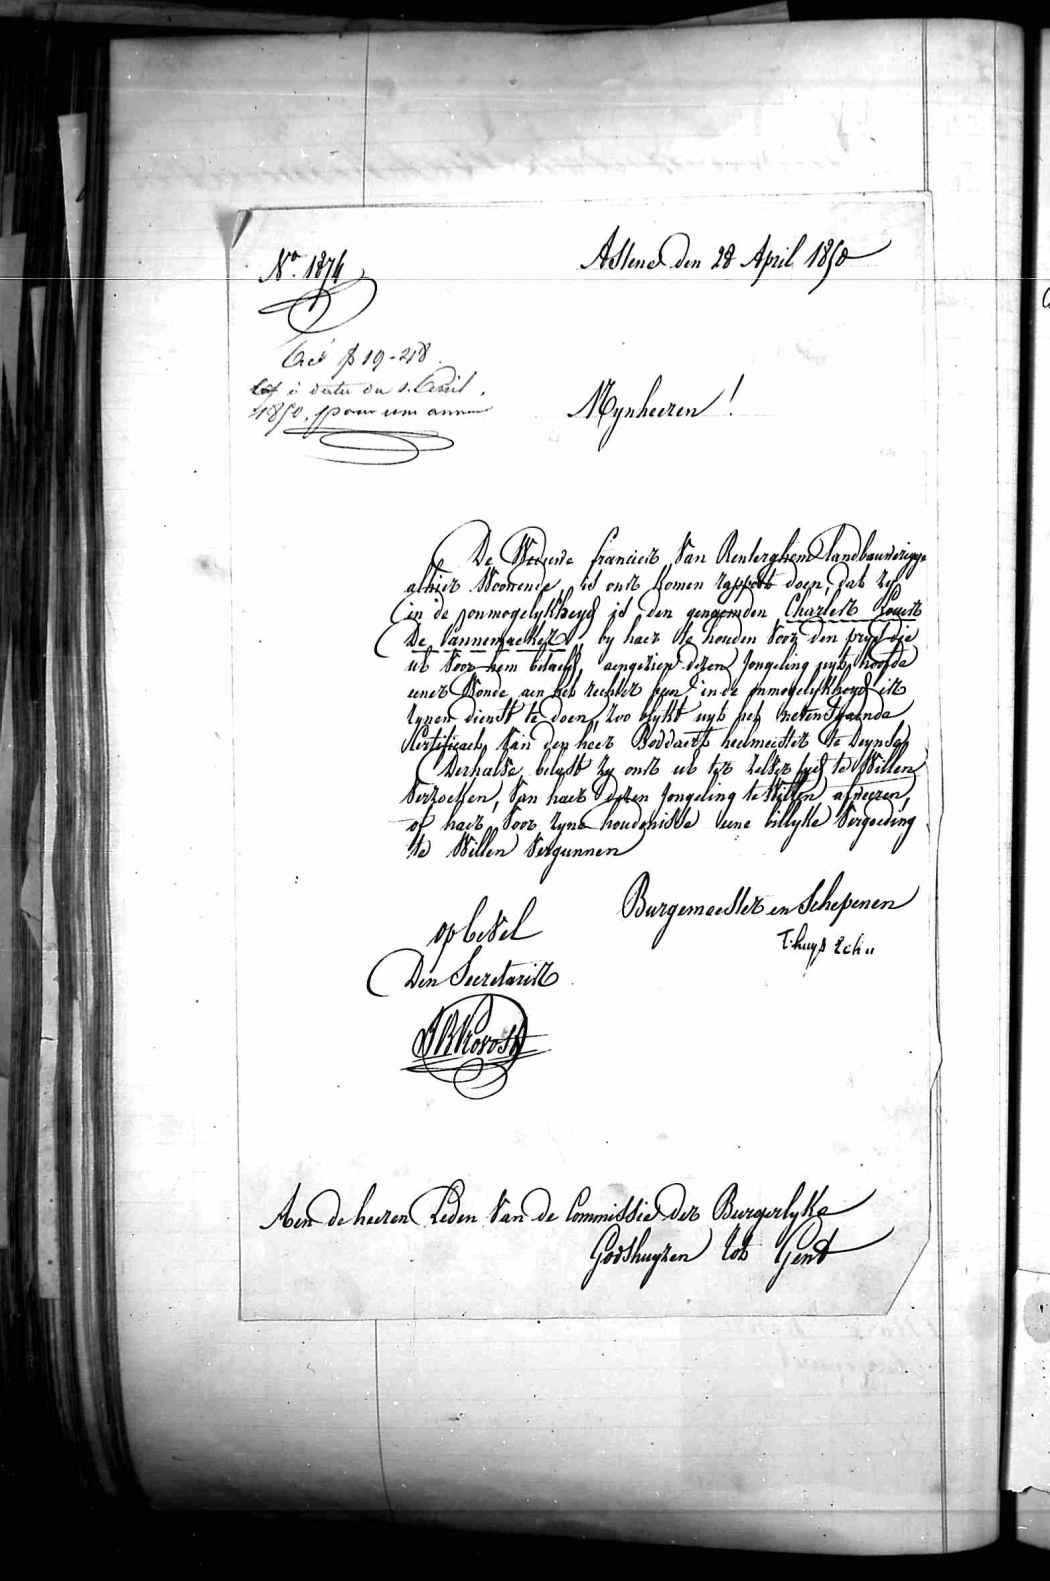 N° 1874
Astene den 28 April 1850
à date du 1. Avril
1850. pour une année
Mynheeren!
De Weduwe francies Van Renterghem landbouwerigge
alhier Woonende, is ons komen rapport doen, dat zy
in de onmogelykheyd is den genaemden Charles Louis
De Pannemaeker, by haer te houden Voor den prys die
UE Voor hem betaeld, aengezien dezen Jongeling uyt hoofde
eener Wonde aen het rechter been in de onmogelykheyd is
zynen dienst te doen, zoo blykt uyt het nevensgaende
Certificaet Van den heer Boddaert heelmeester te Deynse,
Derhalve belast zy ons UE ter zelver tyd te Willen
Verzoeken, Van haer dezen Jongeling te Willen afneezen,
of haer Voor zyne houdenisse eene billyke Vergoeding
te Willen Vergunnen
Burgemeester en Schepenen
op bevel
Den Secretaris
Aen de heeren Leden Van de Commissie der Burgerlyke
Godshuyzen tot Gend